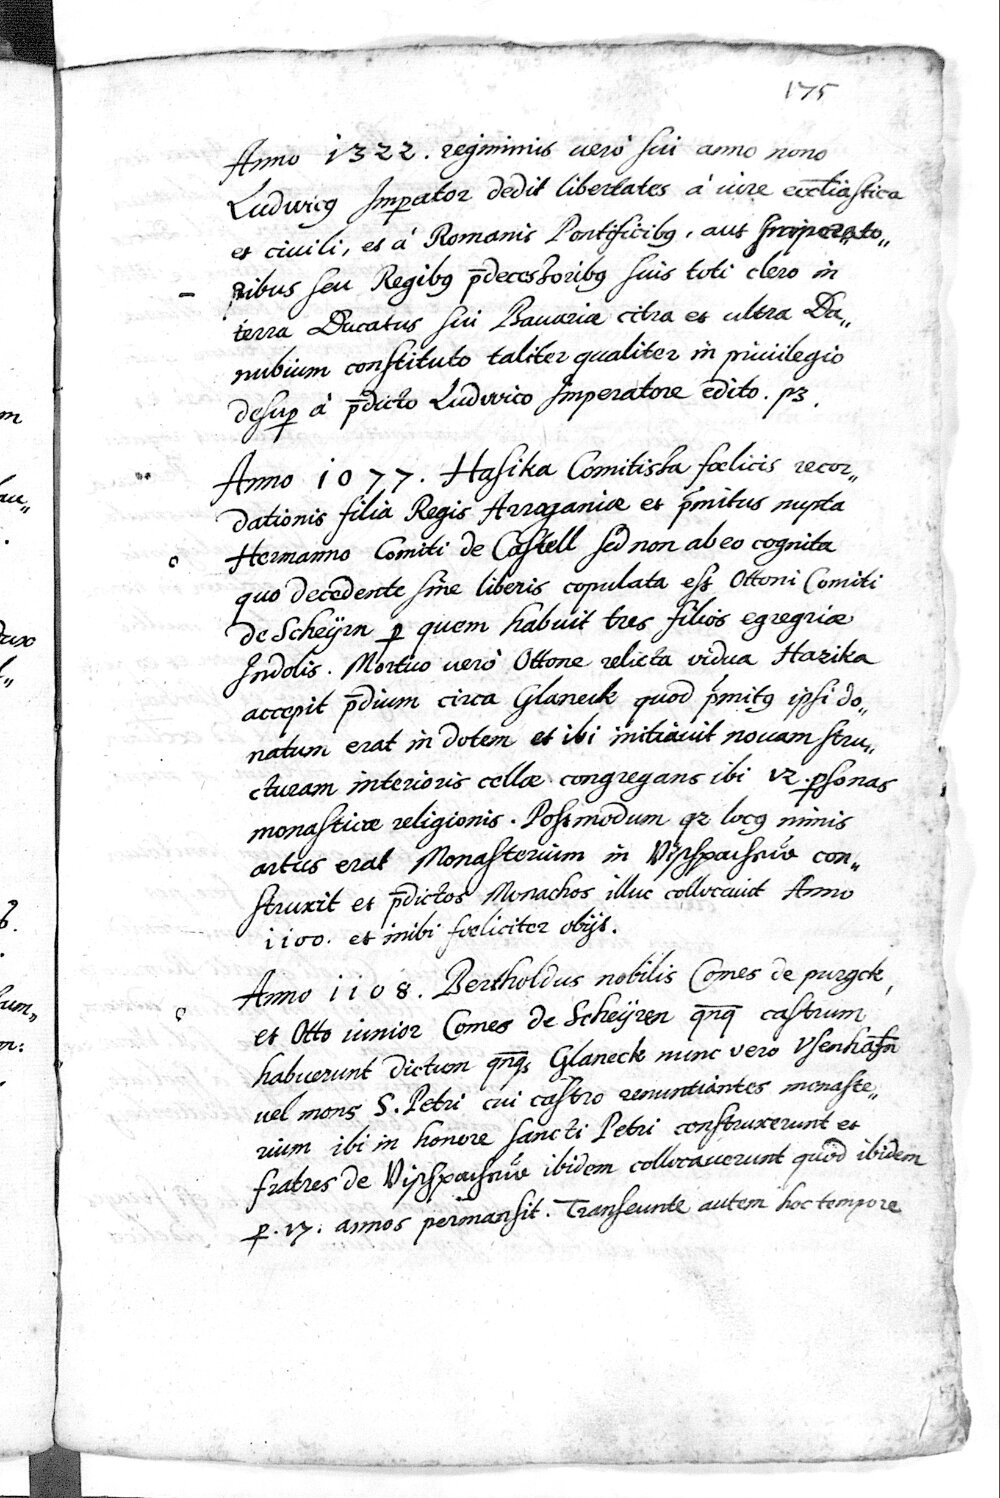 175
Anno 1322. regiminis uerò sui anno nono
Ludvicꝰ Imꝑator dedit libertates à iure eccl̄iastica
et civili, et à Romanis Pontificibꝰ, aut Imperato„
ribus seu Regibꝰ p̄decessoribꝰ suis toti clero in
terra Ducatus sui Bauariæ citra et ultra Da„
nubium constituto taliter qualiter in priuilegio
desuꝑ à p̄dicto Ludvvico Imperatore edito. pz.
Anno 1077. Hasika Comitissa fœlicis recor„
dationis filia Regis Arroganiæ et p̄mitus nupta
Hermanno Comiti de Castell sed non ab eo cognita
quo decedente sine liberis copulata est Ottoni Comiti
de Scheÿrn ꝑ quem habuit tres filios egregiæ
Indolis. Mortuo uerò Ottone relicta vidua Hazika
accepit p̄dium circa Glaneck quod p̄mitꝰ ipsi do„
natum erat in dotem et ibi initiauit nouam stru„
cturam interioris cellæ congregans ibi 12. ꝑsonas
monasticæ religionis. Postmodum qz locꝰ nimis
artus erat Monasterium in Vischpachaw con„
struxit et p̄dictos Monachos illuc collocauit Anno
1100. et inibi fœliciter obijt.
Anno 1108. Bertholdus nobilis Comes de purgck,
et Otto iunior Comes de Scheÿren qn̄q castrum
habuerunt dictum qn̄q, Glaneck nunc vero Vsenhafn
vel mons S. Petri cui castro renuntiantes monaste„
rium ibi in honore sancti Petri construxerunt et
fratres de Vischpachaw ibidem collocauerunt quod ibidem
ꝑ. 17. annos permansit. Transeunte autem hoc tempore